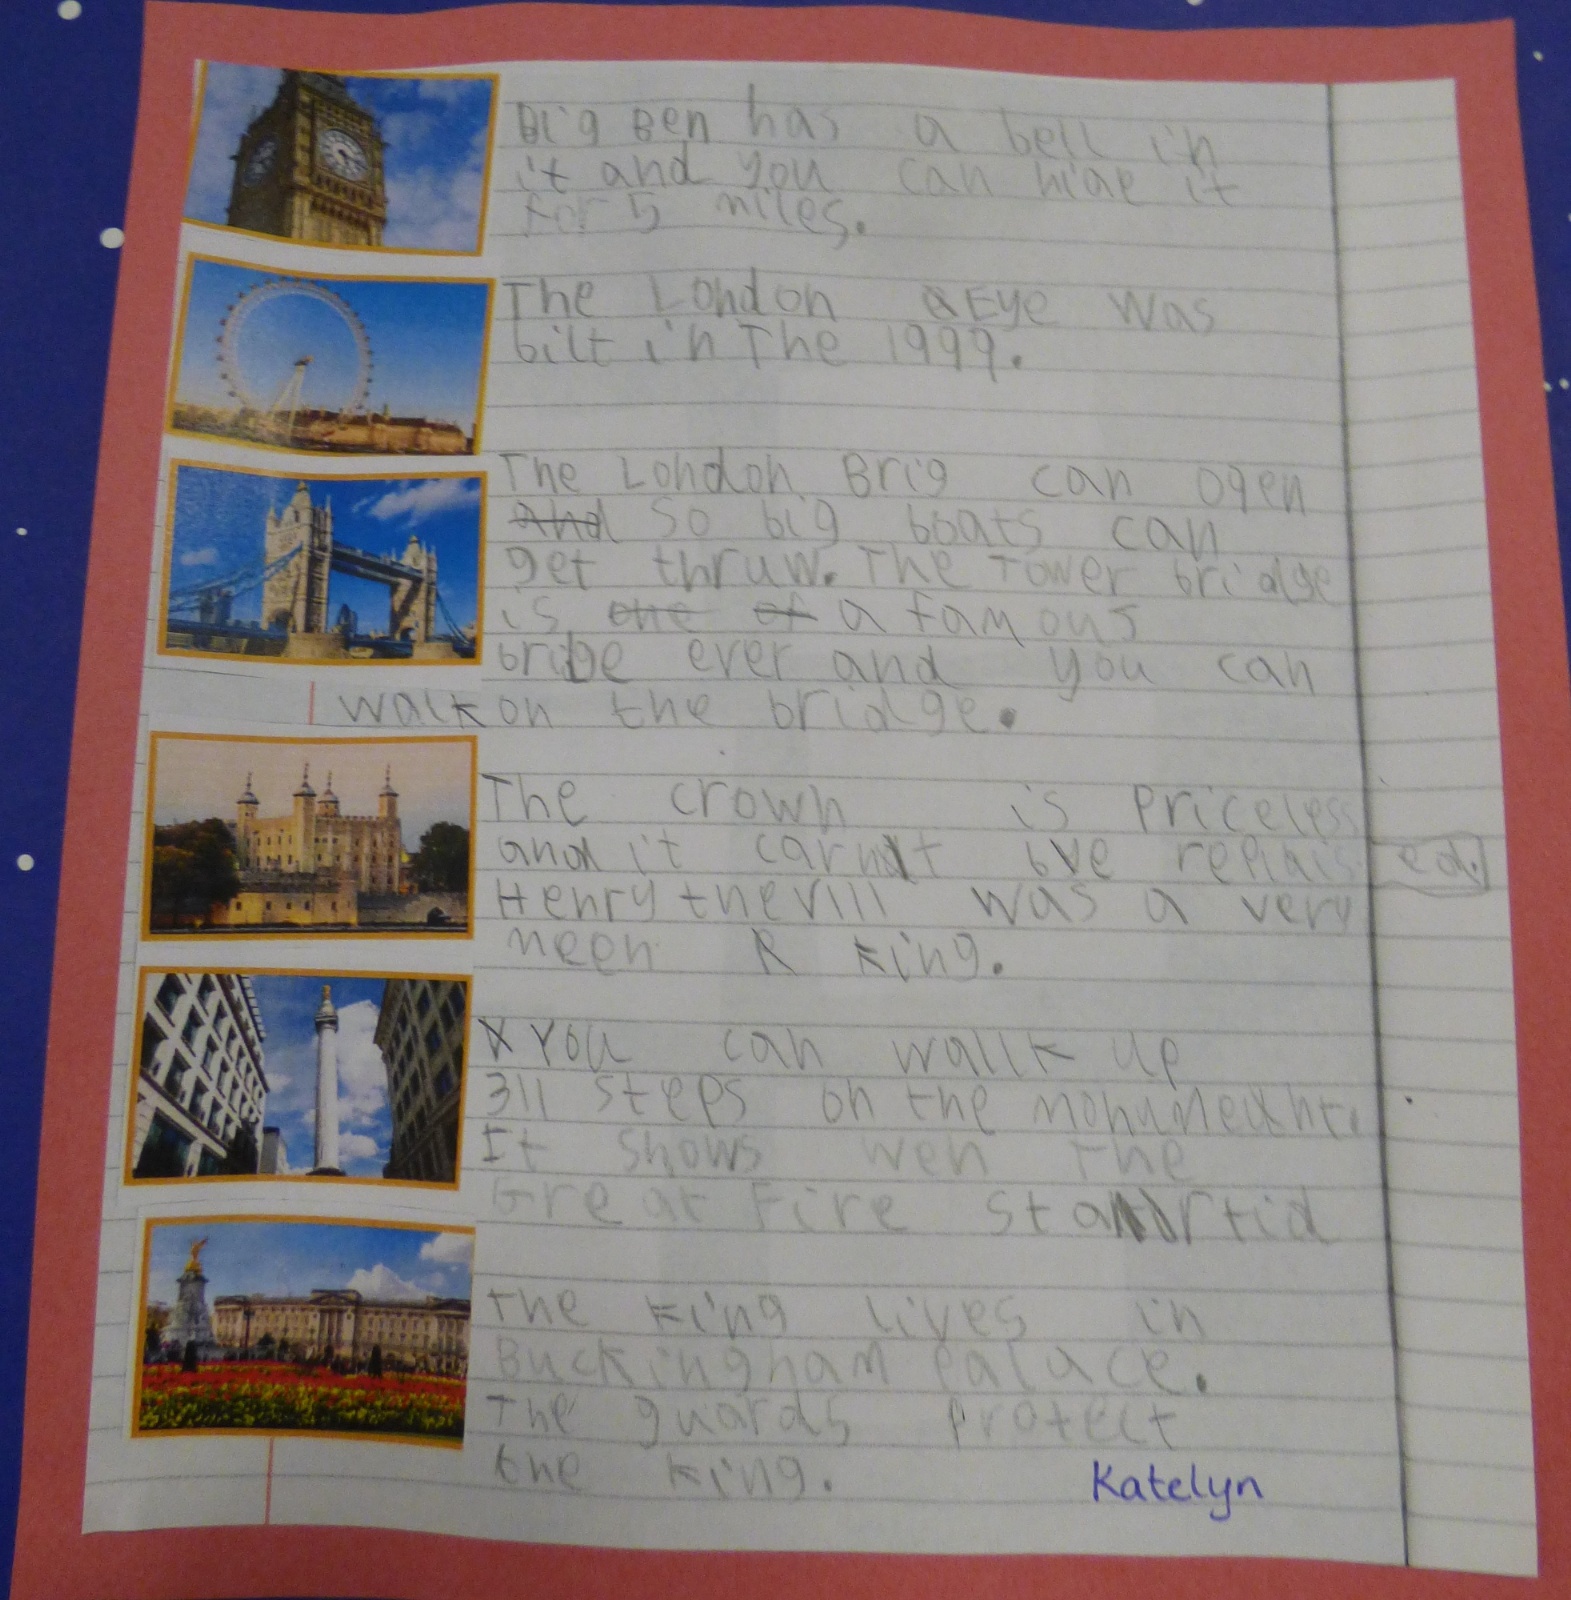 Big Ben has a bell in
it and you can hiae it
for 5 miles.
The London Eye was
bilt in The 1999.
The London Brig can open
and so big boats can
get thruw. The Tower bridge
is one of a famous
bridge ever and you can
walk on the bridge.
The crown is Priceless
and it carnt be replaised.
Henry the VIII was a very
meen R king.
You can wallk up
311 steps on the monument.
It shows wen The
Great Fire startid
The king lives in
Buckingham Palace.
The guards protect
the king.
Katelyn